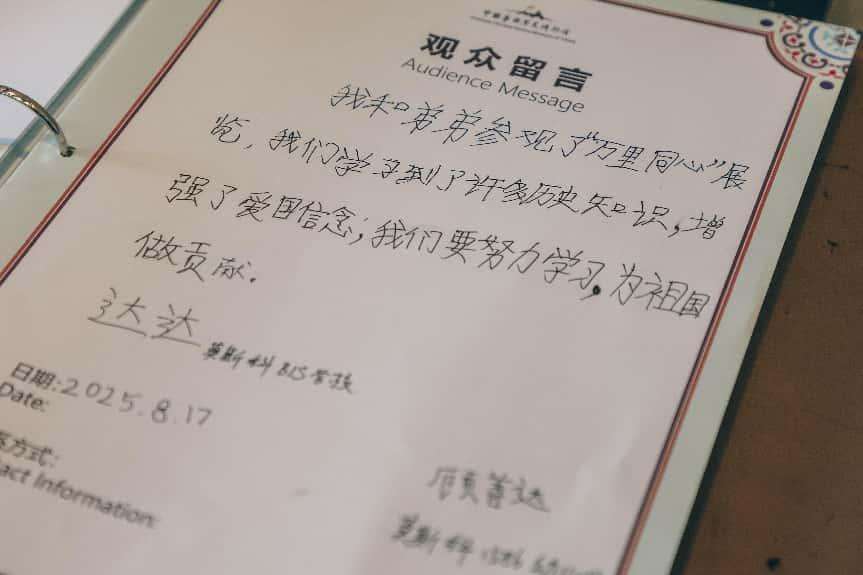 观众留言
Audience Message
我和弟弟参观了“万里同心”展
览，我们学习到了许多历史知识，增
强了爱国信念；我们要努力学习，为祖国
做贡献.
达达
莫斯科BIS学校
日期:2025.8.17
Date:
方式:
act Information:
顾善达
莫斯科